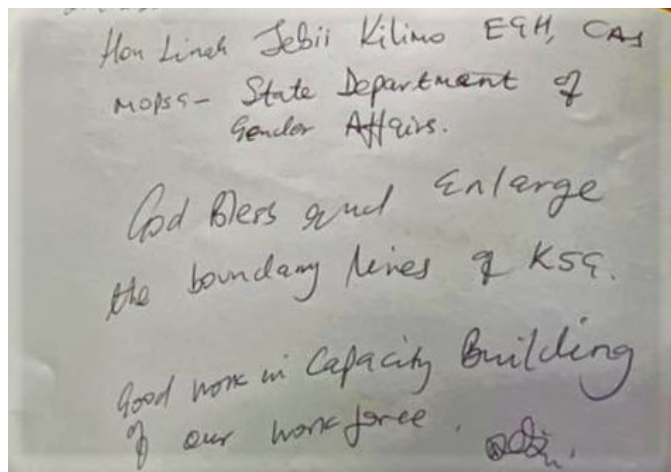 Hon Linah Jebii Kilimo EGH, CAS
MOPSG - State Department of
Gender Affairs.
God Bless and Enlarge
the boundary lines of KSG.
Good work in Capacity Building
of our workforce.